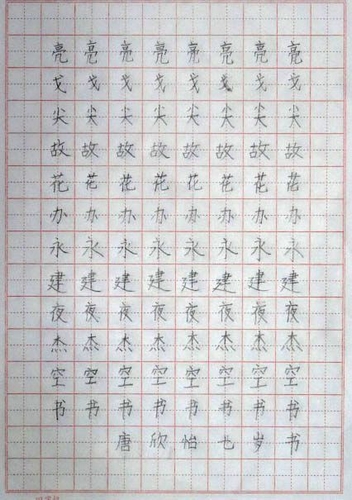 亮亮亮亮亮亮亮亮
戈戈戈戈戈戈戈戈
尖尖尖尖尖尖尖尖
故故故故故故故故
花花花花花花花花
办办办办办办办办
永永永永永永永永
建建建建建建建建
夜夜夜夜夜夜夜夜
杰杰杰杰杰杰杰杰
空空空空空空空空
书书书书书书书书
唐欣怡七岁书